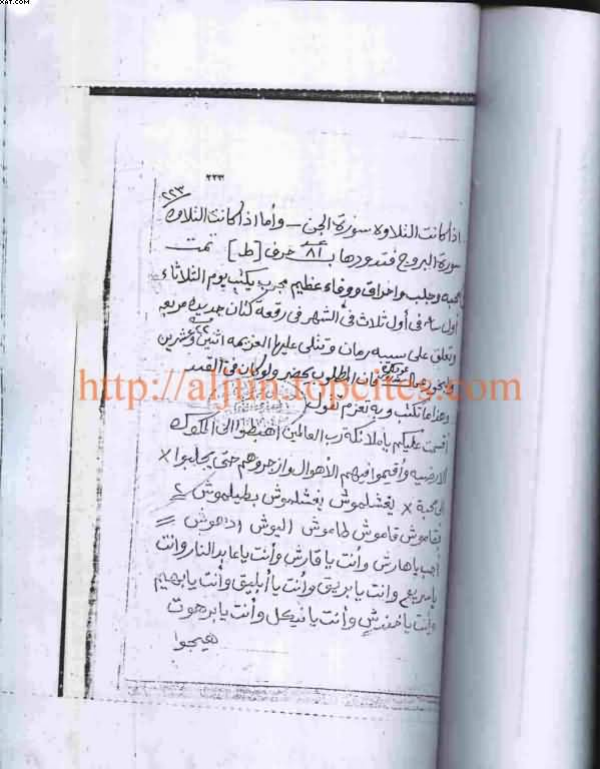 XAT.COM
٢٢٣
٢٢٣
اذا كانت التلاوه سورة الجن - وأما اذا كانت التلاوه
سورة البروج فتدورها بـ ٨١ حرف [ط] تمت
محبه وجلب واحراق ووفاء عظيم مجرب يكتب يوم الثلاثاء
أول فى أول ثلاث فى الشهر فى رقعة كتان جديده مربعه
وتعلق على سيبه رمان وتتلى عليها العزيمه اثنين وعشرين ٢٢ مره
فان المطلوب يحضر ولو كان فى القيد
http://aljiin.topcites.com
وهذا ما تكتب وبه تعزم تقول
أقسمت عليكم ياملائكة رب العالمين اهبطوا الى الملوك
الارضيه وأقيموا فيهم الأهوال وازجروهم حتى يجلبوا ×
الى محبة × يغشلموش بغشلموش بطيلموش ٢
قاموش طاموش اليوش اداهوش =
أجب ياهارش وأنت ياقارش وأنت ياعابد النار وانت
ياسريع وانت يابريق وأنت يا أبليق وأنت يابهيم
وأنت ياخندش وأنت يانيكل وأنت يابرهوت
هيجوا